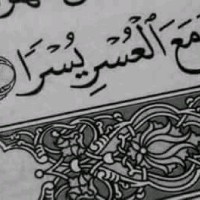 مَعَ ٱلۡعُسۡرِ يُسۡرًا